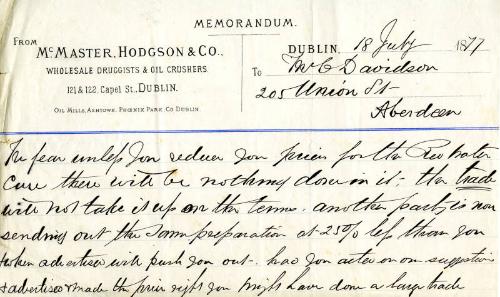 MEMORANDUM.
FROM
McMASTER, HODGSON & CO.,
WHOLESALE DRUGGISTS & OIL CRUSHERS
121 & 122, Capel St., DUBLIN.
OIL MILLS, ASHTOWN, PHŒNIX PARK, CO DUBLIN.
DUBLIN, 18 July 1877
To Mr C Davidson
205 Union St
Aberdeen
We fear unless you reduce your prices for the Red Water
Cure there will be nothing done in it; the trade
will not take it up on the terms. another party is now
sending out the same preparation at 25% less than you
when advertised will push you out. had you acted on our suggestion
& advertised & made the price right you might have done a large trade